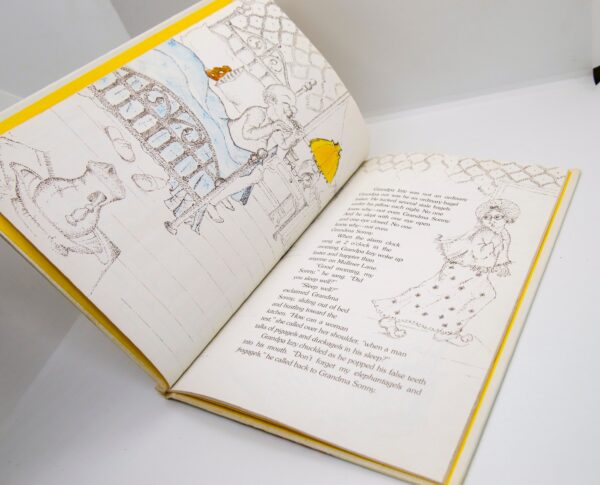 Grandpa Izzy was not an ordinary
Grandpa nor was he an ordinary bagel
lover. He tucked several stale bagels
under his pillow each night. No one
knew why—not even Grandma Sonny.
And he slept with one eye open
and one eye closed. No one
knew why—not even
Grandma Sonny.
When the alarm clock
rang at 2 o'clock in the
morning, Grandpa Izzy woke up
faster and happier than
anyone on Mulliner Lane.
"Good morning, my
Sonny," he sang. "Did
you sleep well?"
"Sleep well?"
exclaimed Grandma
Sonny, sliding out of bed
and bustling toward the
kitchen. "How can a woman
rest," she called over her shoulder, "when a man
talks of pigagels and duckagels in his sleep?"
Grandpa Izzy chuckled as he popped his false teeth
into his mouth. "Don't forget my elephantagels and
frogagels," he called back to Grandma Sonny.